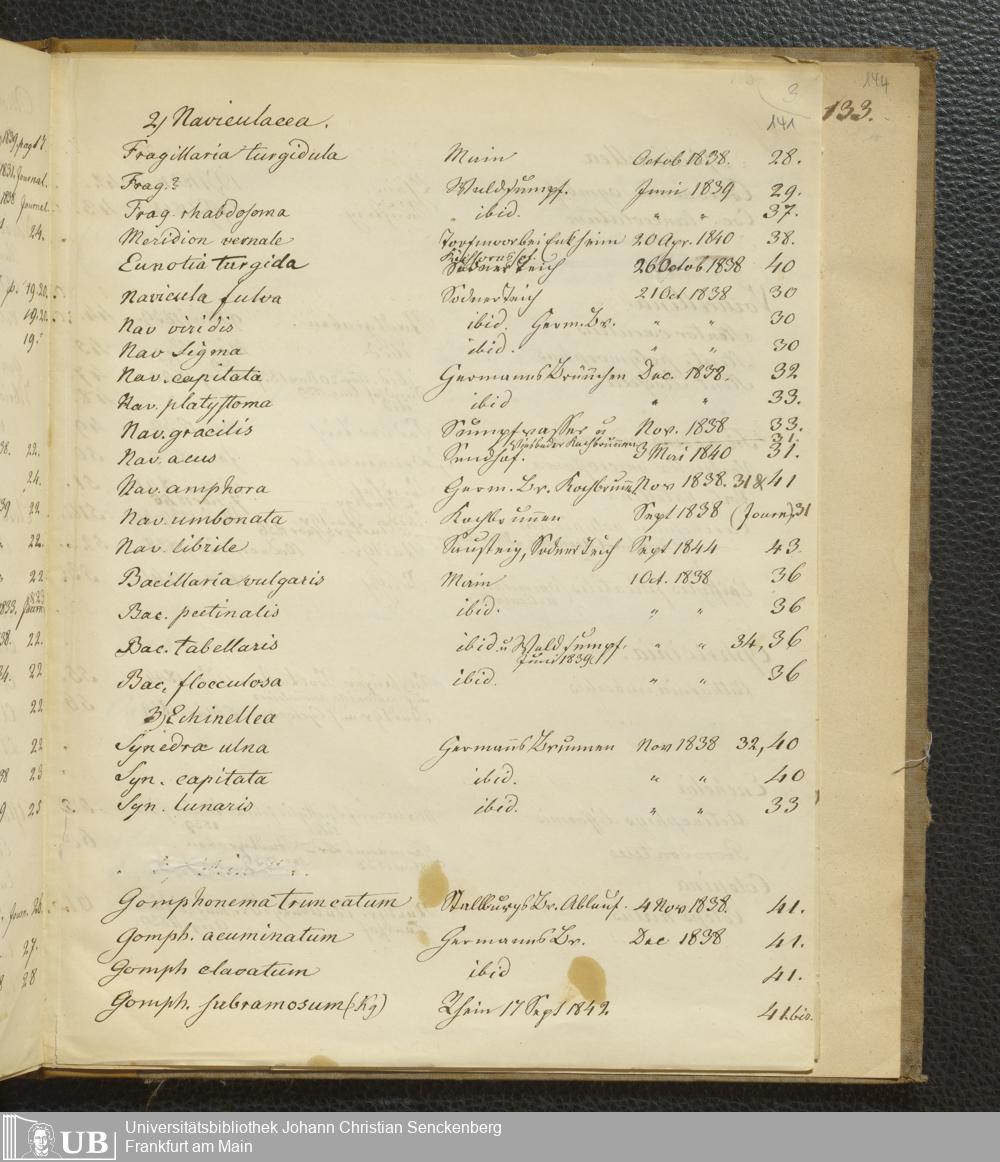 144
133.
3
141
2) Naviculacea.
Fragillaria turgidula Main Octob 1838. 28.
Frag.? Waldsumpf. Juni 1839 29.
Frag. rhabdosoma ibid. " " 37.
Meridion vernale Torfmoor bei Enkheim 20 Apr. 1840 38.
Eunotia turgida Södnerteich 26 Octob 1838 40
Navicula fulva Södnerteich 21 Oct 1838 30
Nav viridis ibid. Germ. Br. " " 30
Nav Sigma ibid. " " 30
Nav. capitata Germanns Brünnchen Dec. 1838. 32
Nav. platystoma ibid " " 33.
Nav. gracilis Sumpfwasser u Nov. 1838 33.
Wiesbader Kochbrunnen 31.
Nav. acus Sandhof. 3 Mai 1840 31.
Nav. amphora Germ. Br. Kochbrunn Nov 1838. 31 & 41
Nav. umbonata Kochbrunnen Sept 1838 (Journ) 31
Nav. librile Sausteig, Södnerteich Sept 1844 43.
Bacillaria vulgaris Main 1 Oct. 1838 36
Bac. pectinalis ibid. " " 36
Bac. tabellaris ibid u Waldsumpf. " " 34, 36
Juni 1839
Bac. flocculosa ibid. " " 36
3) Echinellea
Synedra ulna Germanns Brunnen Nov 1838 32, 40
Syn. capitata ibid. " " 40
Syn. lunaris ibid. " " 33
Gomphonema truncatum Stallburgs Br. Ablauf. 4 Nov 1838. 41.
Gomph. acuminatum Germanns Br. Dec 1838 41.
Gomph clavatum ibid 41.
Gomph. subramosum (Kg) Rhein 17 Sept 1842. 41.bis.
UB Universitätsbibliothek Johann Christian Senckenberg
Frankfurt am Main